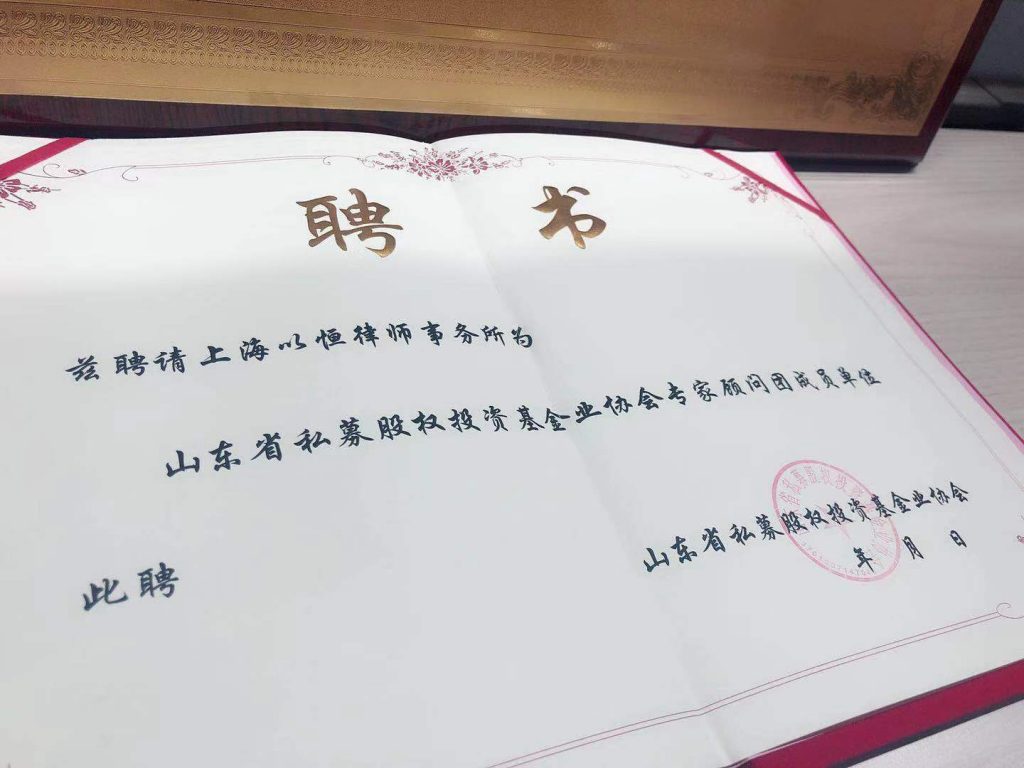 聘书
兹聘请上海以恒律师事务所为
山东省私募股权投资基金业协会专家顾问团成员单位
此聘
山东省私募股权投资基金业协会
年 月 日